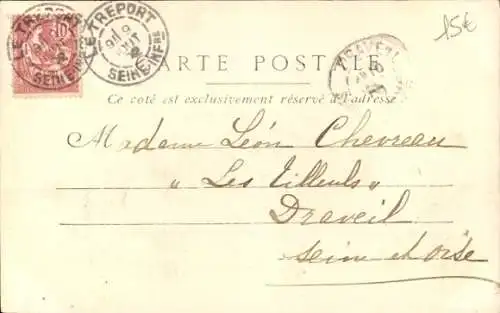 LE TREPORT
SEINE-INFRE
LE TREPORT
SEINE-INFRE
10
15€
CARTE POSTALE
DRAVEIL
Ce coté est exclusivement réservé à l'adresse
Madame Léon Chevreau
"Les Tilleuls"
Draveil
Seine et oise